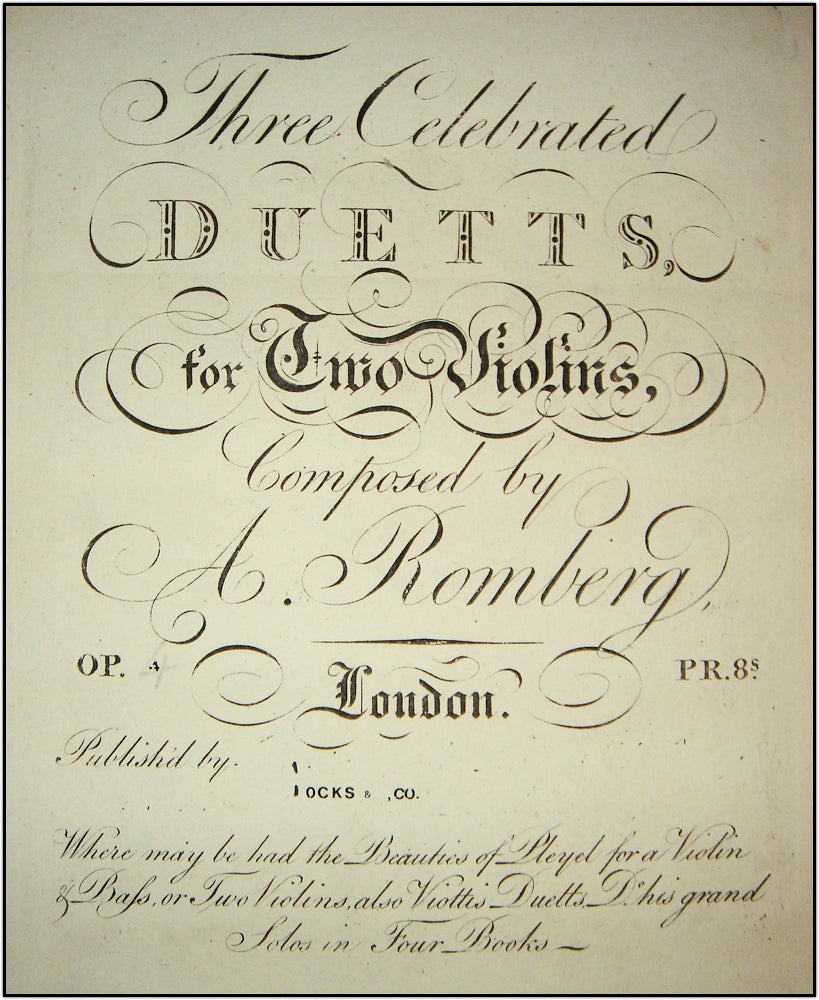 Three Celebrated
DUETTS,
for Two Violins,
Composed by
A. Romberg,
OP. 4
London.
PR. 8s.
Publish'd by
OCKS & CO.
Where may be had the Beauties of Pleyel for a Violin
& Baſs, or Two Violins, also Viottis Duetts, Do. his grand
Solos in Four Books —